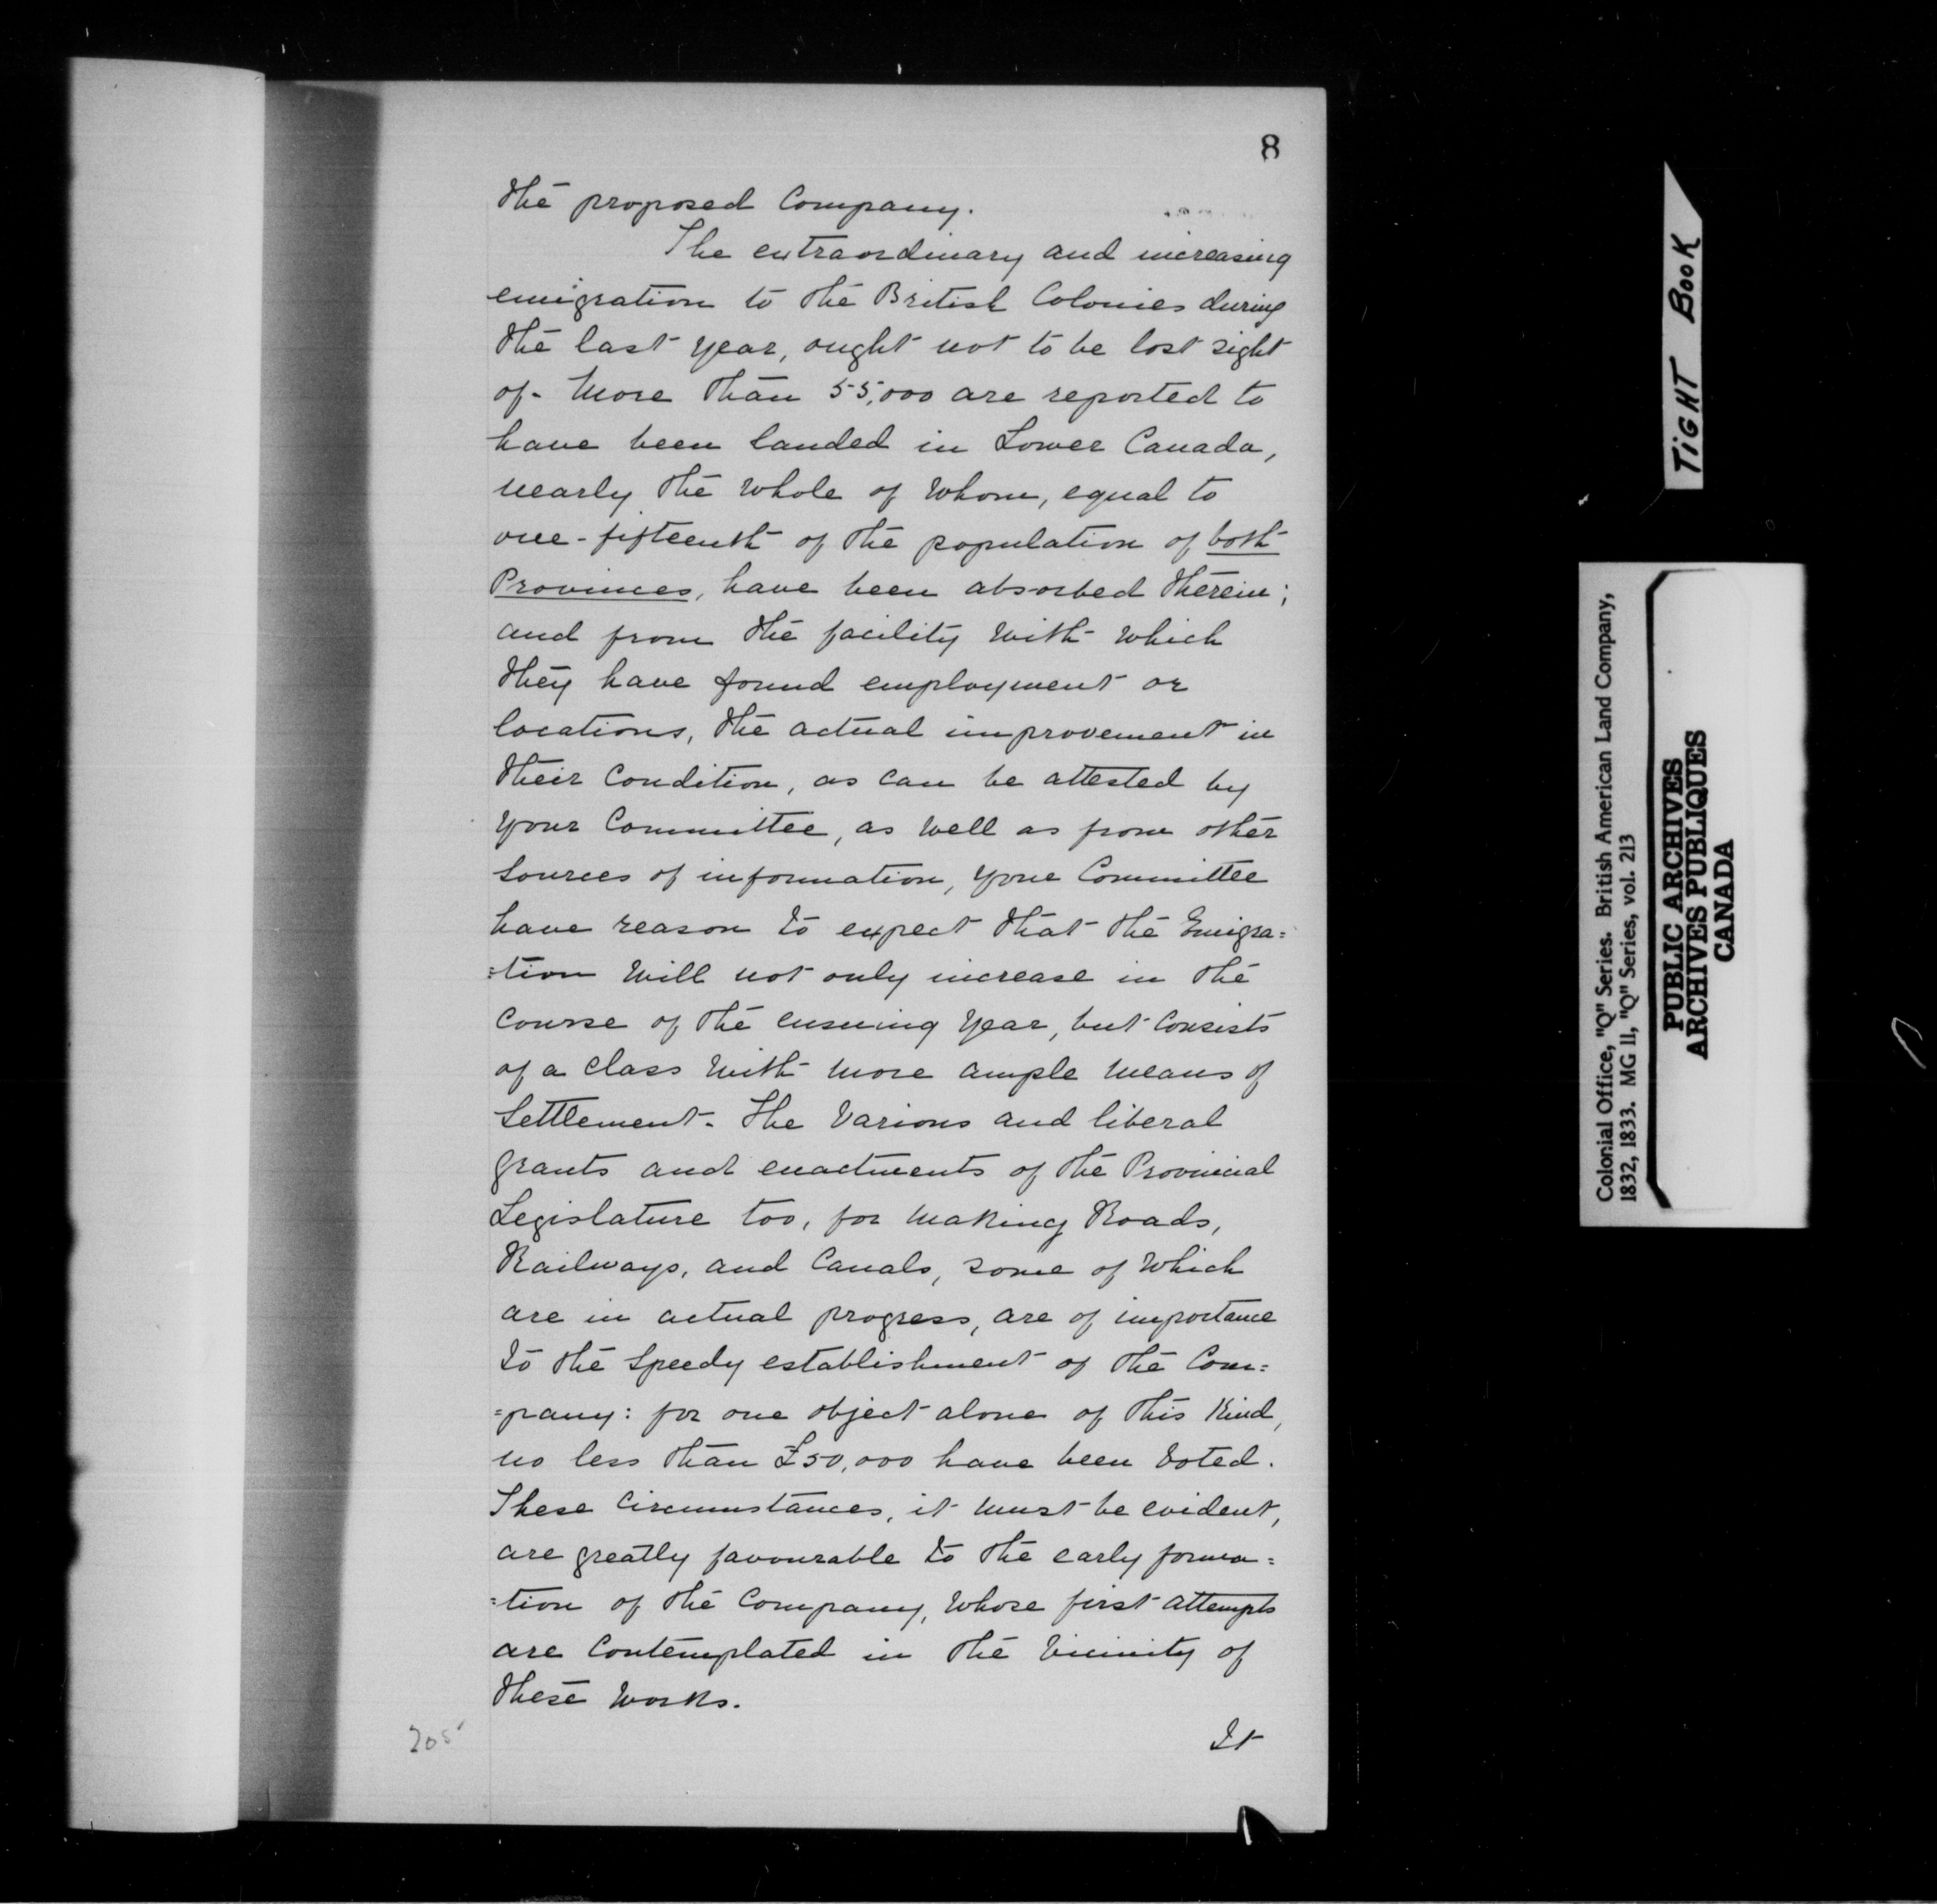 8
the proposed Company.
The extraordinary and increasing
emigration to the British Colonies during
the last year, ought not to be lost sight
of - More than 55,000 are reported to
have been landed in Lower Canada,
nearly the whole of whom, equal to
one-fifteenth of the population of both
Provinces, have been absorbed therein;
and from the facility with which
they have found employment or
locations, the actual improvement in
their condition, as can be attested by
your Committee, as well as from other
sources of information, your Committee
have reason to expect that the Emigra=
=tion will not only increase in the
course of the ensuing year, but consists
of a class with more ample means of
settlement - The various and liberal
grants and enactments of the Provincial
Legislature too, for making Roads,
Railways, and Canals, some of which
are in actual progress, are of importance
to the speedy establishment of the Com=
=pany: for one object alone of this kind,
no less than £50,000 have been voted.
These circumstances, it must be evident,
are greatly favourable to the early forma=
=tion of the Company, whose first attempts
are contemplated in the vicinity of
these works.
205
It
TIGHT BOOK
Colonial Office, "Q" Series. British American Land Company,
1832, 1833. MG 11, "Q" Series, vol. 213
PUBLIC ARCHIVES
ARCHIVES PUBLIQUES
CANADA